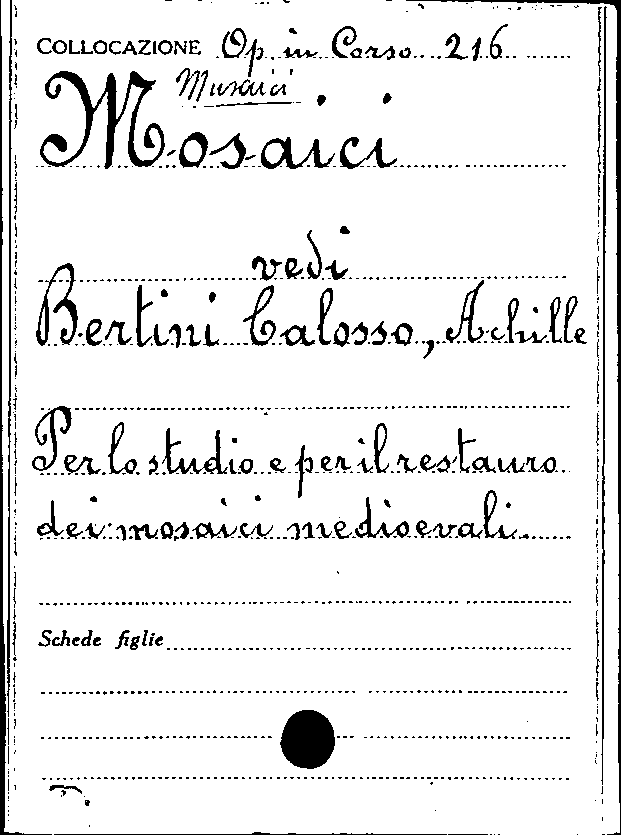 COLLOCAZIONE Op in Corso 216
Musaici
Mosaici
vedi
Bertini Calosso, Achille
Per lo studio e per il restauro
dei mosaici medioevali.
Schede figlie